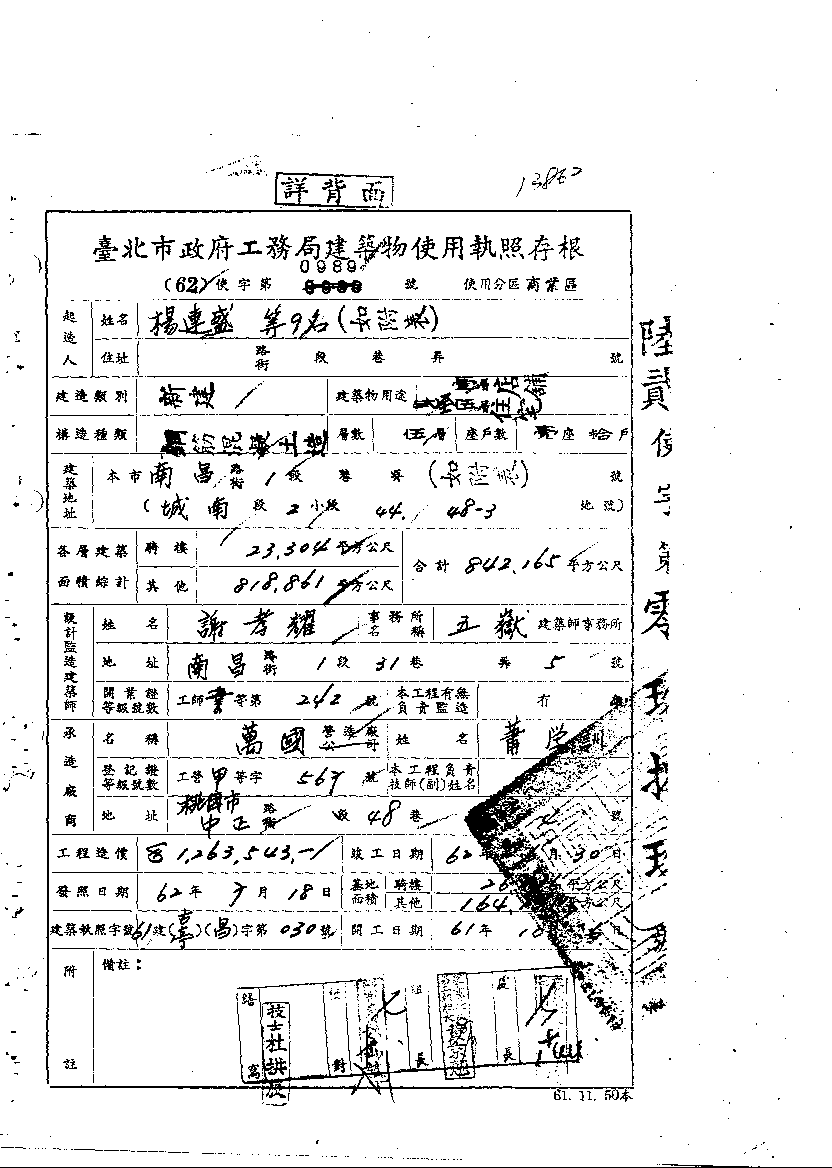 13862
詳背面
臺北市政府工務局建築物使用執照存根
0989
(62)使字第 號 使用分區商業區
起造人 姓名 楊連盛 等9名(如附表)
住址 路街 段 巷 弄 號
建造類別 新建 建築物用途 店舖 住宅
構造種類 鋼筋混凝土造 層數 伍層 座戶數 壹座拾戶
建築地址 本市南昌路街1段 巷 弄 (如附表) 號
(城南段2小段 44. 48-3 地號)
各層建築面積綜計 騎樓 23.304平方公尺 合計 842.165平方公尺
其他 818.861平方公尺
設計監造建築師 姓名 謝孝耀 事務所名稱 五嶽建築師事務所
地址 南昌路街1段31巷 弄5號
開業證等級號數 工師 等第242號 本工程有無負責監造 有
承造廠商 名稱 萬國營造廠公司 姓名 蕭
登記證等級號數 工營甲等字567號 本工程負責技師(副)姓名
地址 桃園市中正路街 段48巷 號
工程造價 1,263,543,- 竣工日期 62年 月30日
發照日期 62年 月18日 基地面積 騎樓 平方公尺
其他 164. 平方公尺
建築執照字號 61建( )(昌)字第030號 開工日期 61年 日
附註 備註:
繕寫 技士杜 校對 組長 處長
61. 11. 50本
陸貳使字第零玖捌玖